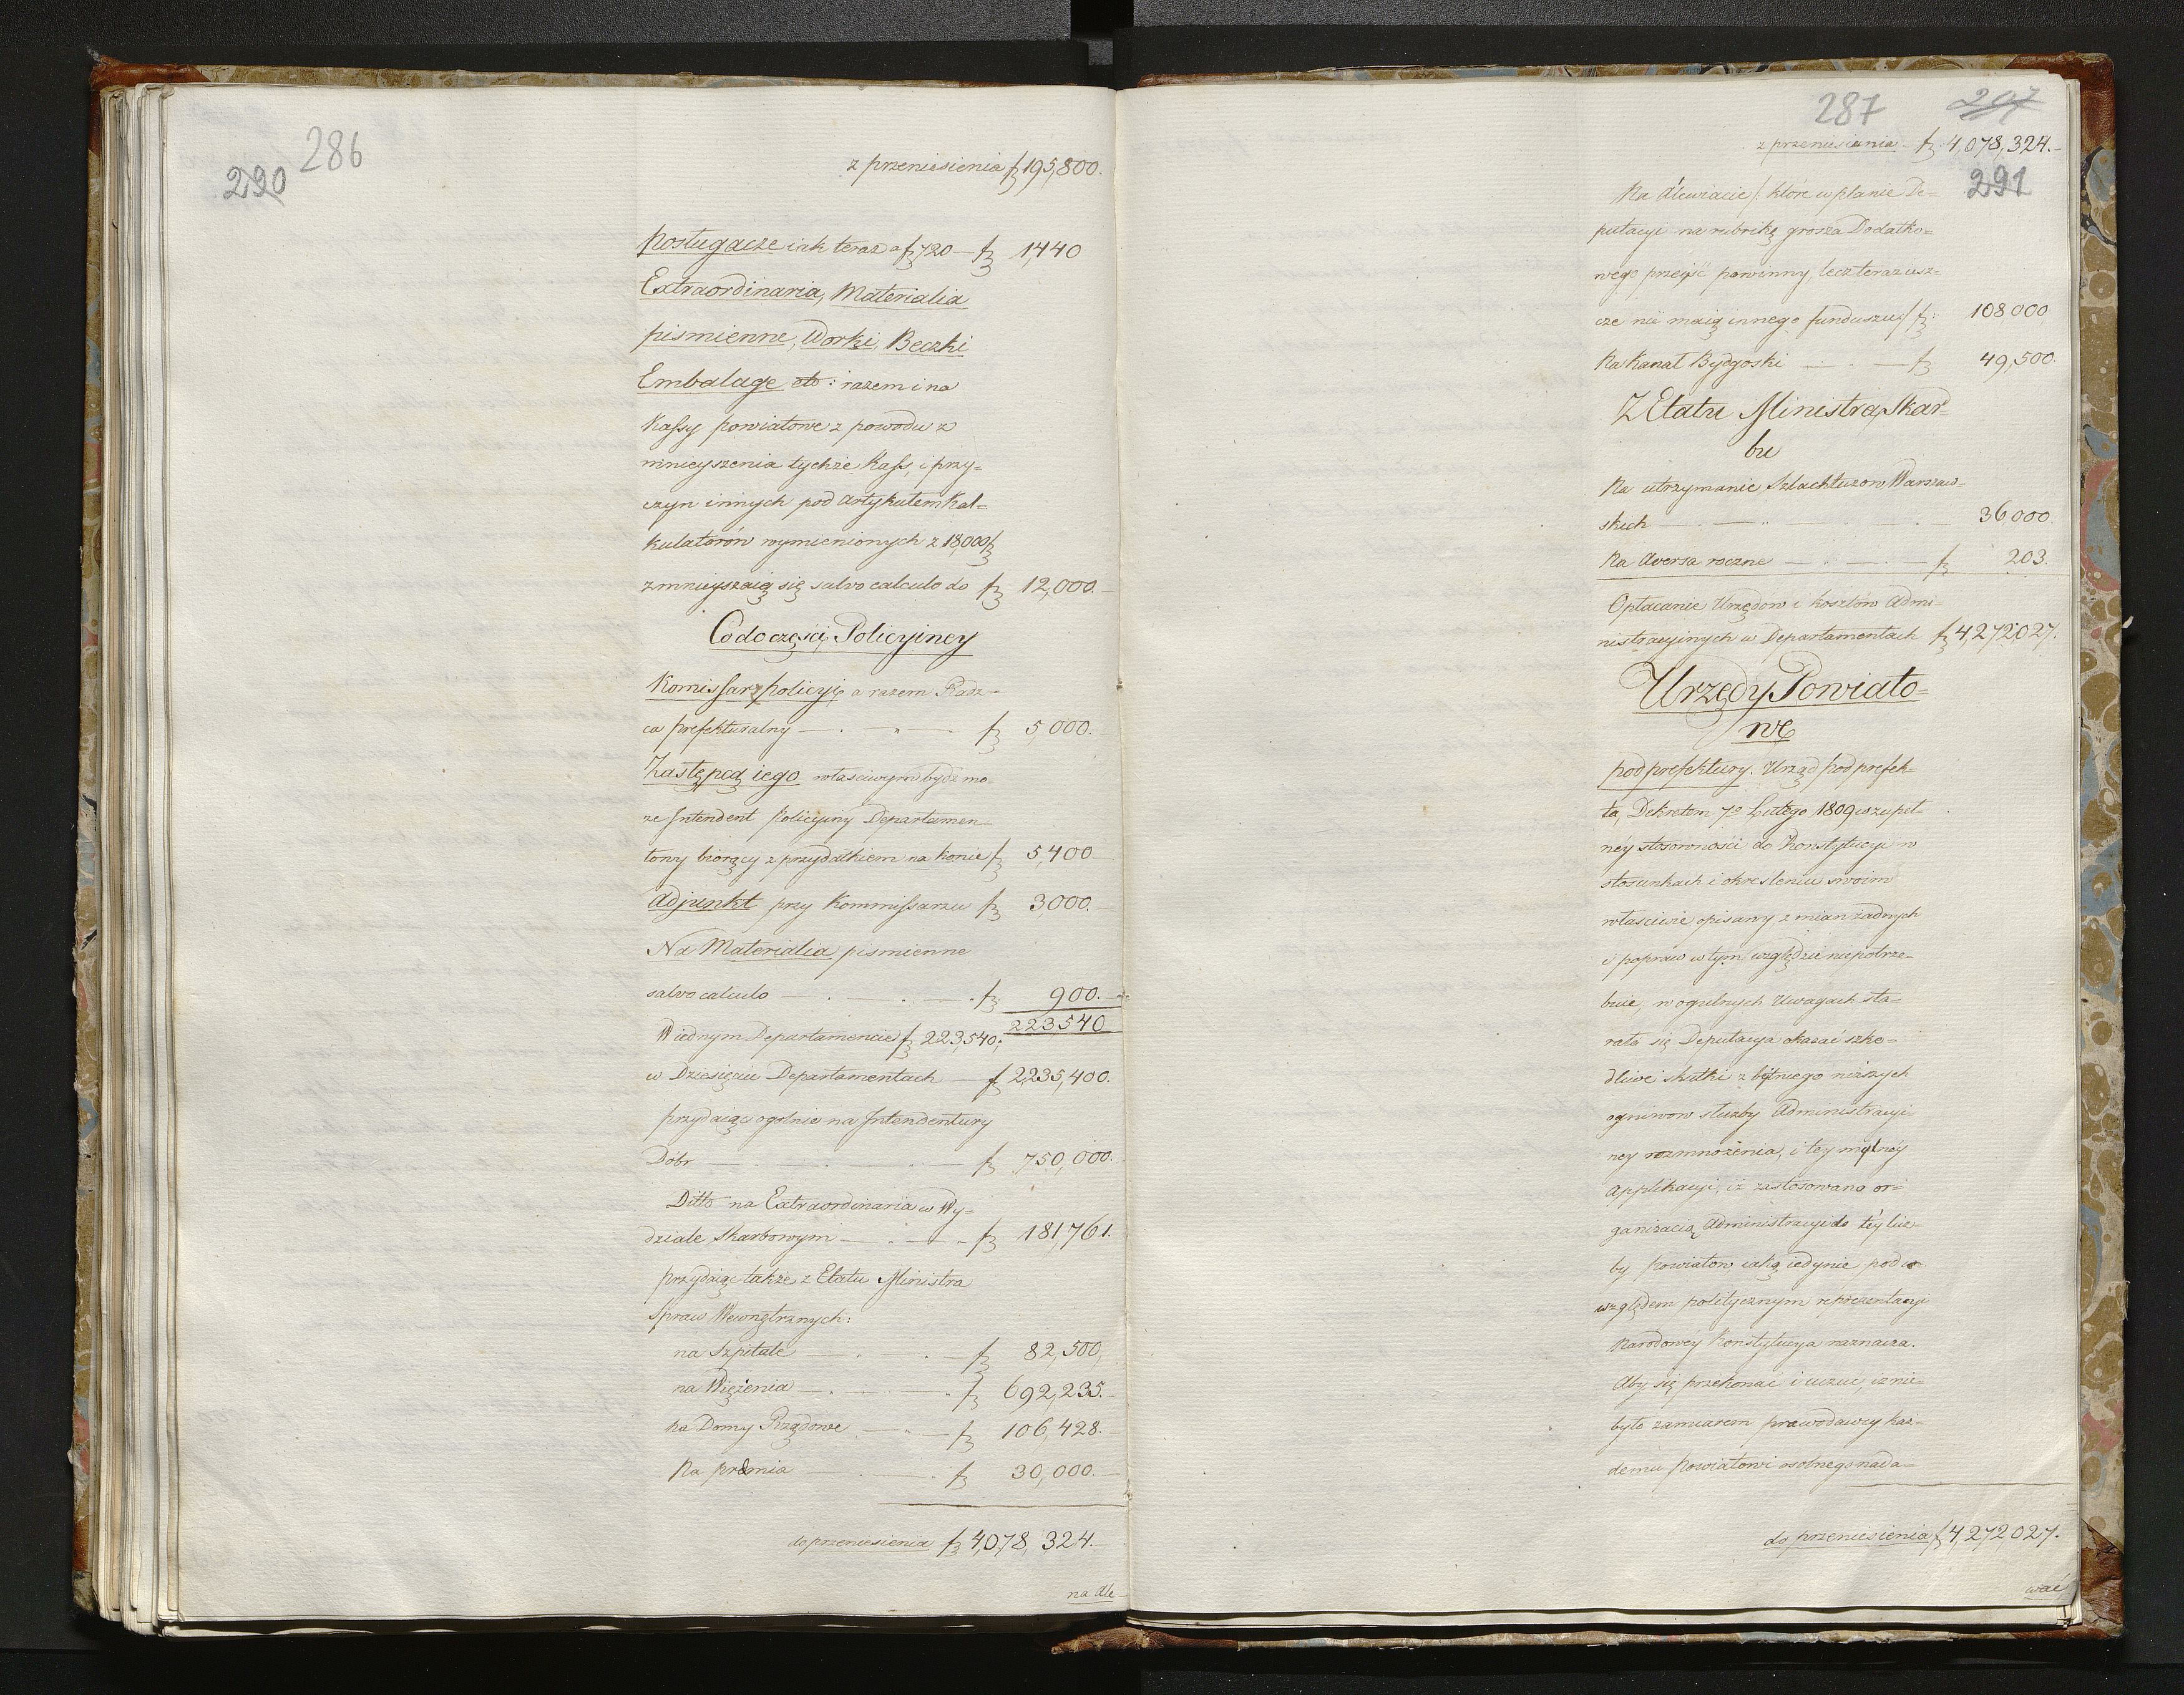 286
290
z przeniesienia fz 195,800.
Posługacze iak teraz a fz 720 — fz 1,440
Extraordinaria, Materialia
pismienne, Worki, Beczki
Embalage etc: razem i na
Kassy powiatowe z powodu z
mnieyszenia tychże Kass, i przy=
czyn innych pod artykułem Kal=
kulatorów wymienionych z 18,000 fz
zmnieyszaią się salvo calculo do fz 12,000.—
Co do części Policyiney
Komissarz policyi, a razem Radz=
ca prefekturalny — fz 5,000.
Zastępcą iego właściwym bydź mo
że Intendent Policyiny Departamen=
towy biorący z przydatkiem na konie fz 5,400—
Adjunkt przy Kommissarzu fz 3,000.—
Na Materialia pismienne
salvo calculo — fz 900.—
223,540
W iednym Departamencie fz 223,540.
w Dziesięciu Departamentach — fz 2,235,400.
przydaiąc ogólnie na Intendentury
Dóbr — fz 750,000.
Ditto na Extraordinaria w Wy=
dziale Skarbowym — fz 181,761.
przydaiąc także z Etatu Ministra
Spraw Wewnętrznych:
na Szpitale — fz 82,500,
na Więzienia — fz 692,235.—
na Domy Rządowe — fz 106,428.
Na premia — fz 30,000.—
do przeniesienia fz 4,078,324.—
na Ale=
287 207
z przeniesienia — fz 4,078,324.—
291
Na Alewiacie /: które w planie De=
putacyi na rubrikę grosza Dodatko=
wego przeyść powinny, lecz teraz iesz=
cze nie maią innego funduszu :/ fz: 108000
Na Kanał Bydgoski — fz 49,500.
Z Etatu Ministra Skar=
bu
Na utrzymanie Szlachtuzow Warszaw=
skich — 36,000.
Na Aversa roczne — fz 203.
Opłacanie Urzędow i kosztów Admi=
nistracyinych w Departamentach fz 4,272,027.
Urzędy Powiato=
we
podprefektury. Urząd podprefek=
ta, Dekretem 7o Lutego 1809 w zupeł=
néy stosowności do Konstytucyi w
stosunkach i okresleniu swoim
właściwie opisany zmian żadnych
i popraw w tym względzie niepotrze=
buie, w ogulnych Uwagach sta=
rała się Deputacya okazać szko=
dliwe skutki zbytniego niższych
ogniwow służby Administracyi=
ney rozmnożenia, i tey mylnéy
applikacyi, iż zastosowano or=
ganizacią Administracyi do téy licz=
by powiatow, iaką iedynie pod w
względem politycznym reprezentacyi
Narodowéy Konstytucya naznacza.
Aby się przekonać i uczuć, iż nie=
było zamiarem prawodawcy każ=
demu powiatowi osobnego nada=
do przeniesienia fz 4,272,027.
wać